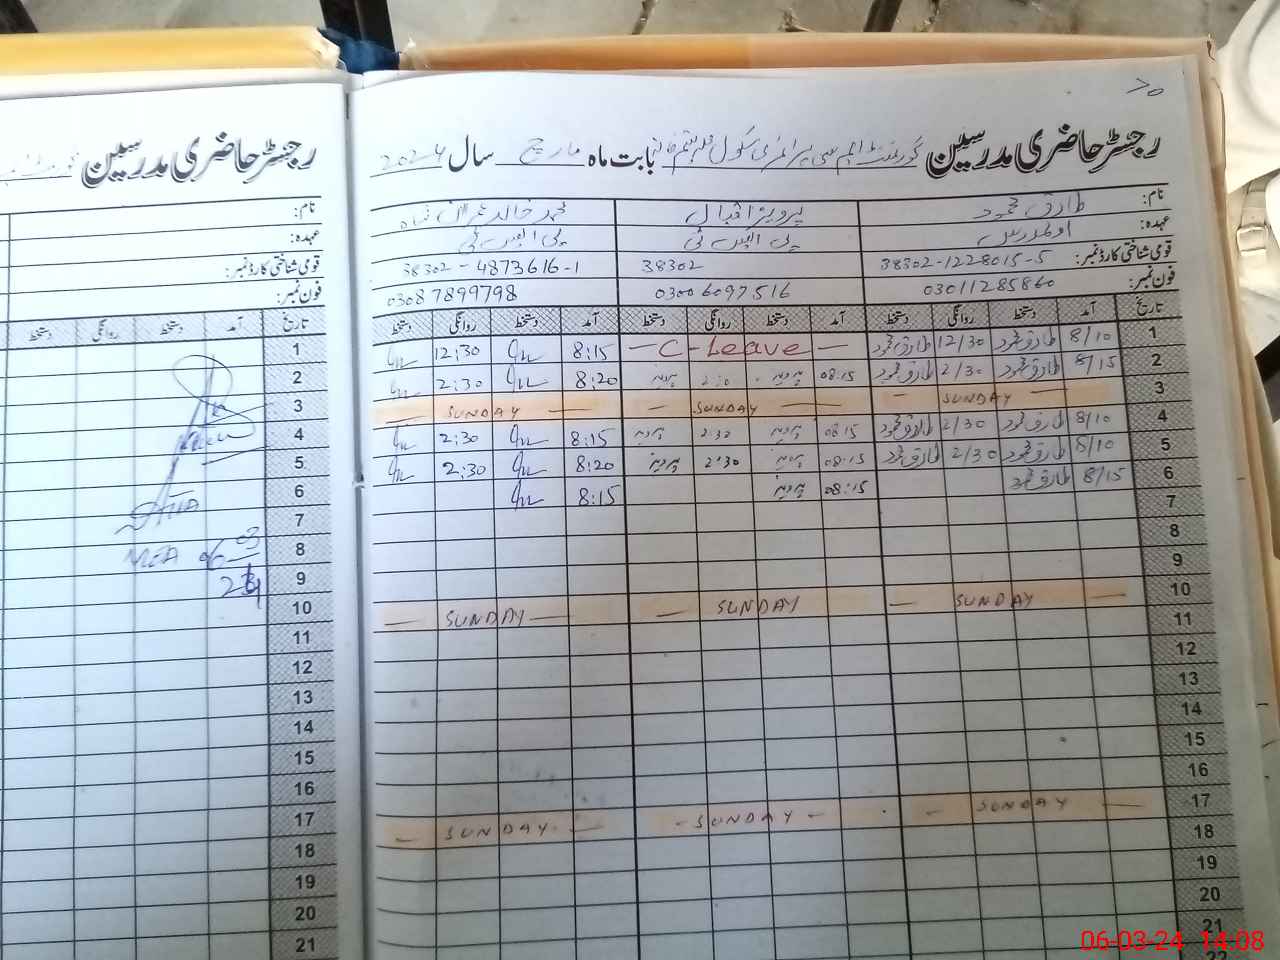 70
رجسٹر حاضری مدرسین گورنمنٹ ایم سی پرائمری سکول بابت ماہ مارچ سال 2024
نام: طارق محمود پرویز اقبال محمد خالد عمران شاہ
عہدہ: اول مدرس پی ایس ٹی پی ایس ٹی
قومی شناختی کارڈ نمبر: 38302-1228015-5 38302 38302-4873616-1
فون نمبر: 03011285860 03006097516 03087899798
تاریخ آمد دستخط روانگی دستخط آمد دستخط روانگی دستخط آمد دستخط روانگی دستخط
1 8/10 طارق محمود 12/30 طارق محمود — C-Leave — 8:15 12:30
2 8/15 طارق محمود 2/30 طارق محمود 08:15 پرویز 2:30 پرویز 8:20 2:30
3 SUNDAY — SUNDAY — — SUNDAY —
4 8/10 طارق محمود 2/30 طارق محمود 08:15 پرویز 2:30 پرویز 8:15 2:30
5 8/10 طارق محمود 2/30 طارق محمود 08:15 پرویز 2:30 پرویز 8:20 2:30
6 8/15 طارق محمود 08:15 پرویز 8:15
7
8
9
10 — SUNDAY — — SUNDAY — SUNDAY —
11
12
13
14
15
16
17 — SUNDAY — - SUNDAY - — SUNDAY —
18
19
20
21
22
رجسٹر حاضری مدرسین
نام:
عہدہ:
قومی شناختی کارڈ نمبر:
فون نمبر:
تاریخ آمد دستخط روانگی دستخط
1
2
3
4
5
6
7
8 MEA 06-03
9 24
10
11
12
13
14
15
16
17
18
19
20
21
06-03-24 14:08